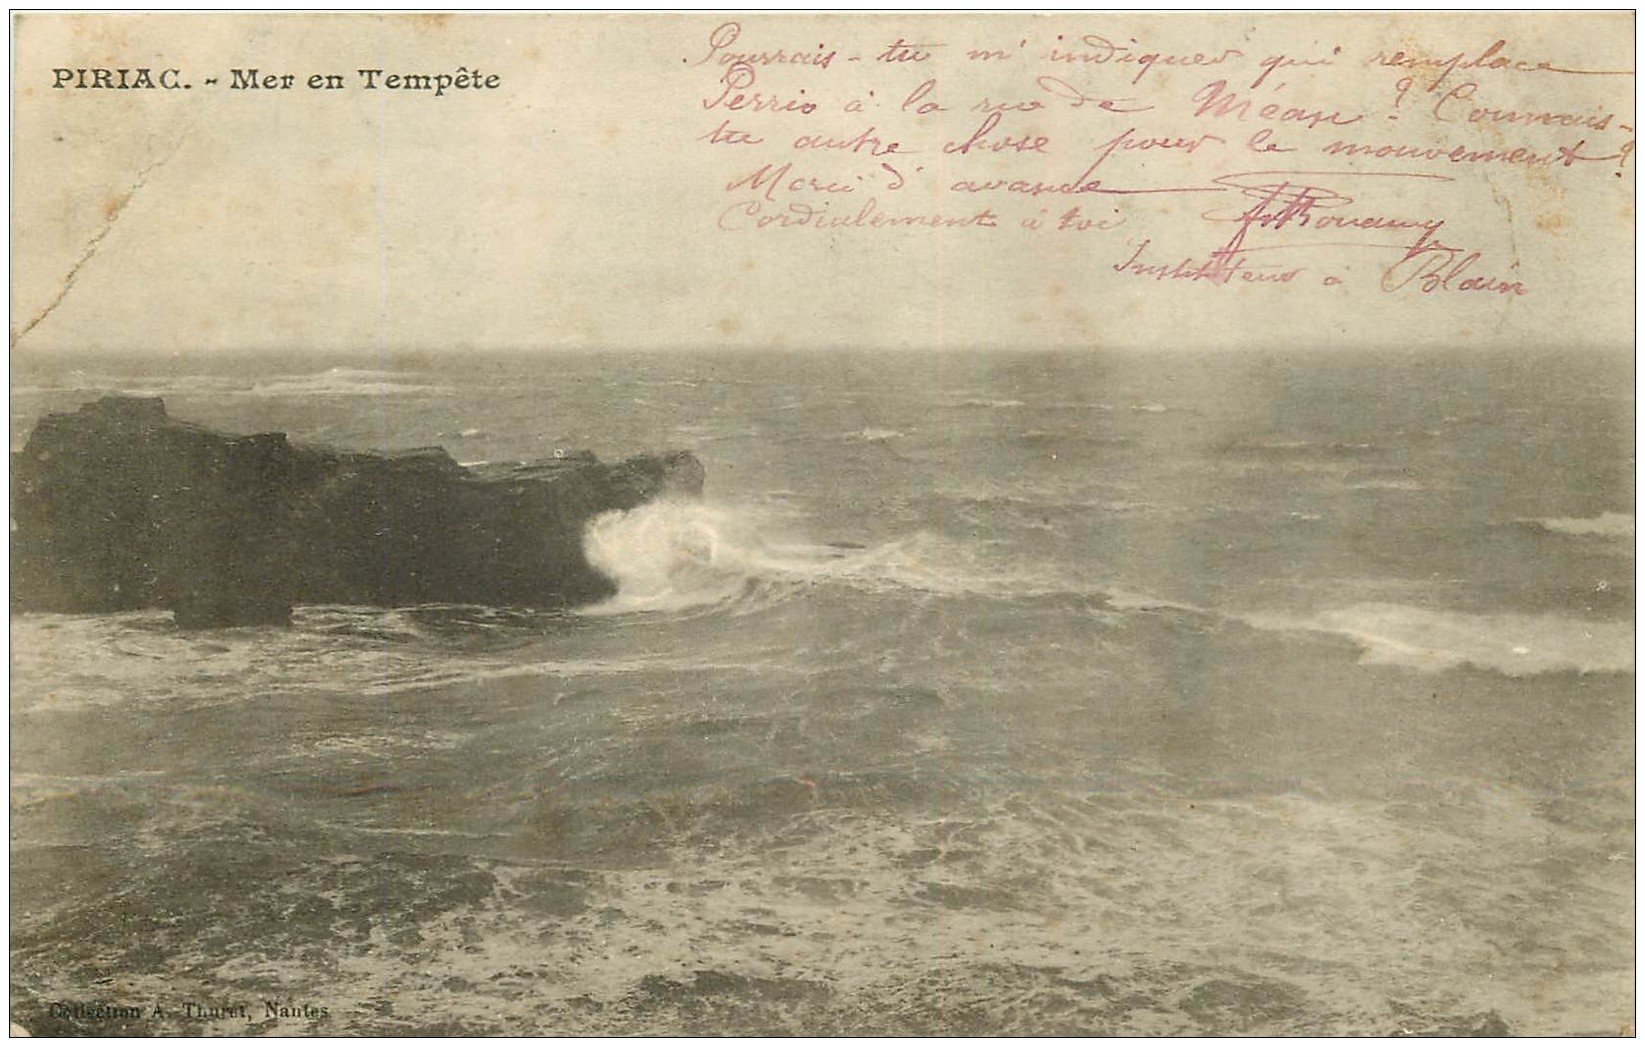 PIRIAC. - Mer en Tempête
Pourrais-tu m'indiquer qui remplace
Perrio à la rue de Méan ? Connais-
tu autre chose pour le mouvement ?
Merci d'avance
Cordialement à toi
Instituteur à Blain
Collection A. Thuret, Nantes